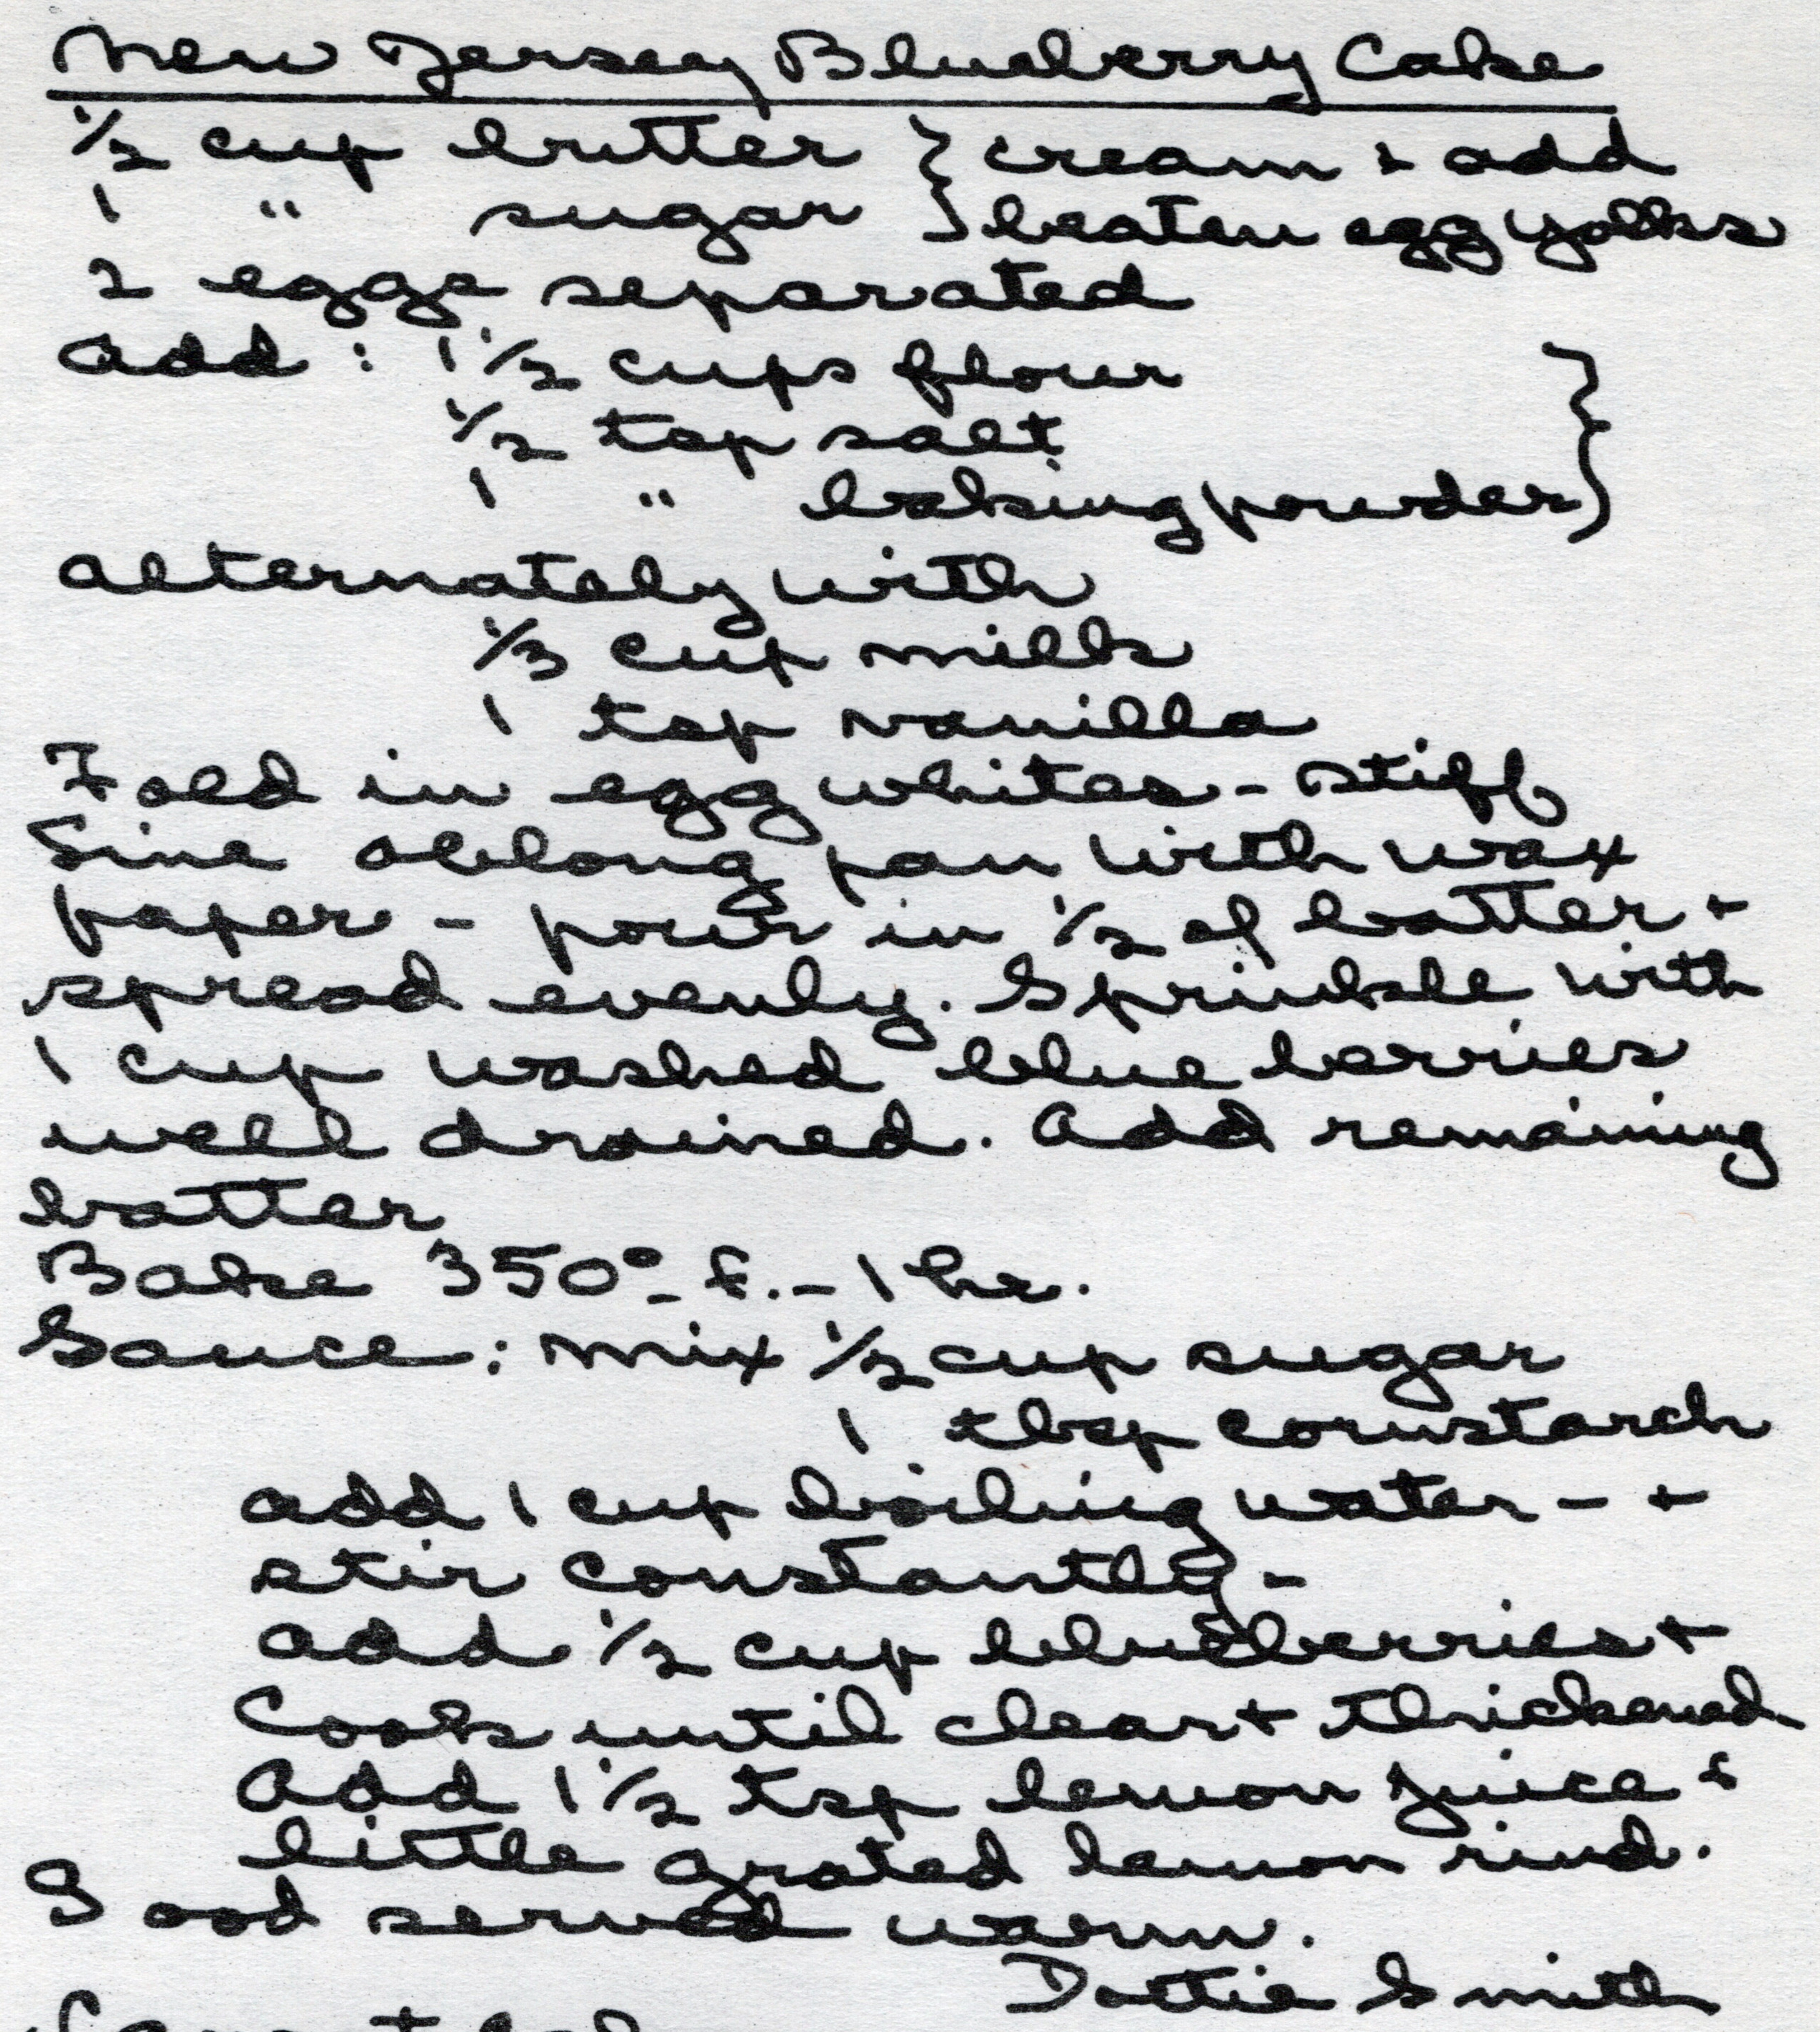 New Jersey Blueberry Cake
1/2 cup butter } cream + add
1 " sugar } beaten egg yolks
2 eggs separated
Add : 1 1/2 cups flour }
1/2 tsp salt
1 " baking powder
alternately with
1/3 cup milk
1 tsp vanilla
Fold in egg whites - stiff
Line oblong pan with wax
paper - pour in 1/2 of batter +
spread evenly. Sprinkle with
1 cup washed blue berries
well drained. Add remaining
batter
Bake 350° f. - 1 hr.
Sauce : mix 1/2 cup sugar
1 tbsp cornstarch
add 1 cup boiling water - +
stir constantly -
add 1/2 cup blueberries +
Cook until clear + thickened
Add 1 1/2 tsp lemon juice &
little grated lemon rind.
Good served warm.
Dottie Smith